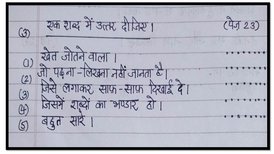 (3) एक शब्द में उत्तर दीजिए। (पेज 23)
(1) खेत जोतने वाला।
(2) जो पढ़ना-लिखना नहीं जानता है।
(3) जिसे लगाकर साफ-साफ दिखाई दे।
(4) जिसमें शब्दों का भण्डार हो।
(5) बहुत सारे।